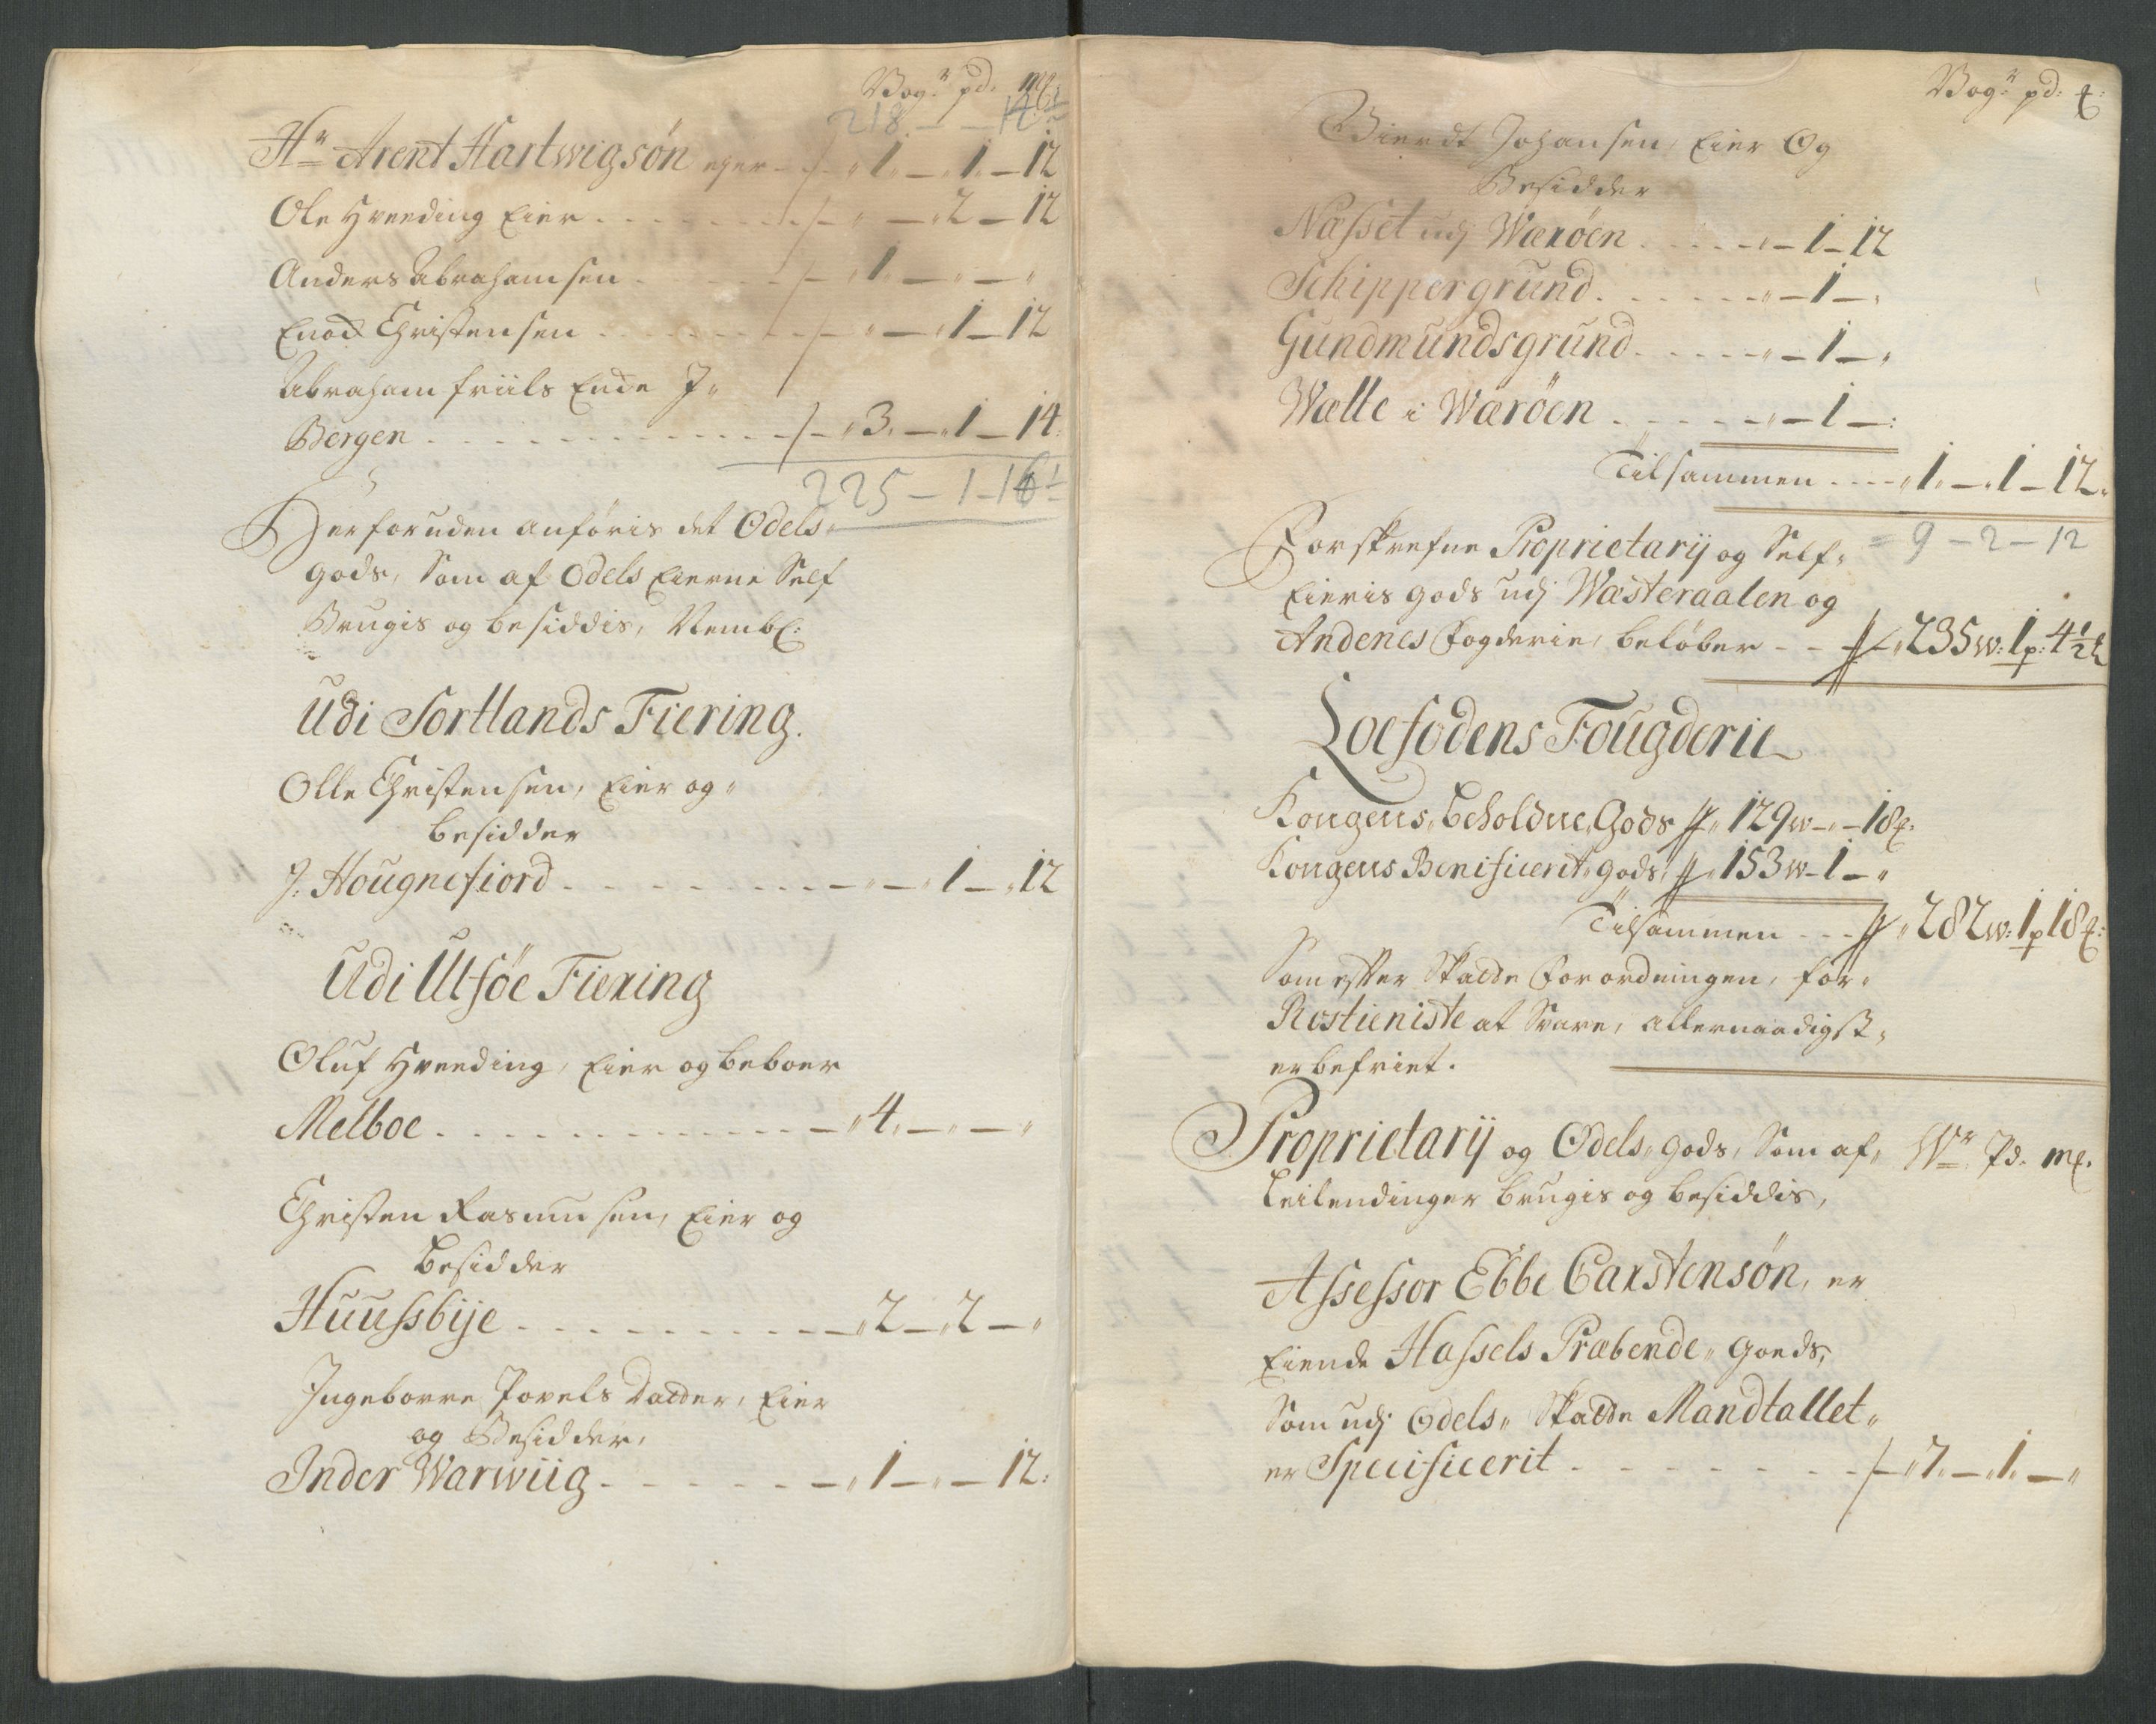 Wog: pd: m&:
218 - - 14½
Hr Arent Hartwigsøn ejer - 1 - 1 - 12
Ole Hveeding Eier - - 2 - 12
Anders Abrahamsen - 1 - -
Enod Christensen - - 1 - 12
Abraham friils Enche J
Bergen - 3 - 1 - 14
225 - 1 - 16½
Herforuden anføris det Odels
gods, Som af Odels Eierne Self
Brugis og besiddis, Nembl:
Udi Sortlands Fiering.
Olle Christensen, Eier og
besidder
J: Hougnefiord - - 1 - 12
Udi Ulføe Fiering
Oluf Hveeding, Eier og beboer
Melboe - 4 - -
Christen Rasmusen, Eier og
besidder
Huussbije - 2 - 2 -
Ingeborre Povels Datter, Eier
og Besidder,
Inder Warwiig - 1 - - 12:
Wog: pd: &:
Bierdt Johansen, Eier Og
Besidder
Næsset udj Wærøen - 1 - 12
Schippergrund - 1 -
Gundmundsgrund - 1 -
Wælle i Wærøen - 1 -
Tilsammen - 1 - 1 - 12
= 9 - 2 - 12
Forskrefne Proprietarij og Self
Eieris gods udj Wæsteraalen og
Andenes Fogderie, beløber - 235 w: 1 p: 4½ &
Loefodens Fougderie
Kongens beholdne Gods 129 w - - 18 &:
Kongens Benificerit gods, 153 w - 1 -
Tilsammen - 282 w: 1 p 18 &:
Som efter Skatte Forordningen, for
Rostieniste at Svare, allernaadigst
er befriet.
Proprietarij og Odels gods, Som af Wr Pd. m&.
Leilendinger brugis og besiddis,
Assessor Ebbe Carstensøn, er
Eiende Hassels Præbende Goeds,
Som udj Odels Skatte Mandtallet
er Specificerit - 7 - 1 -